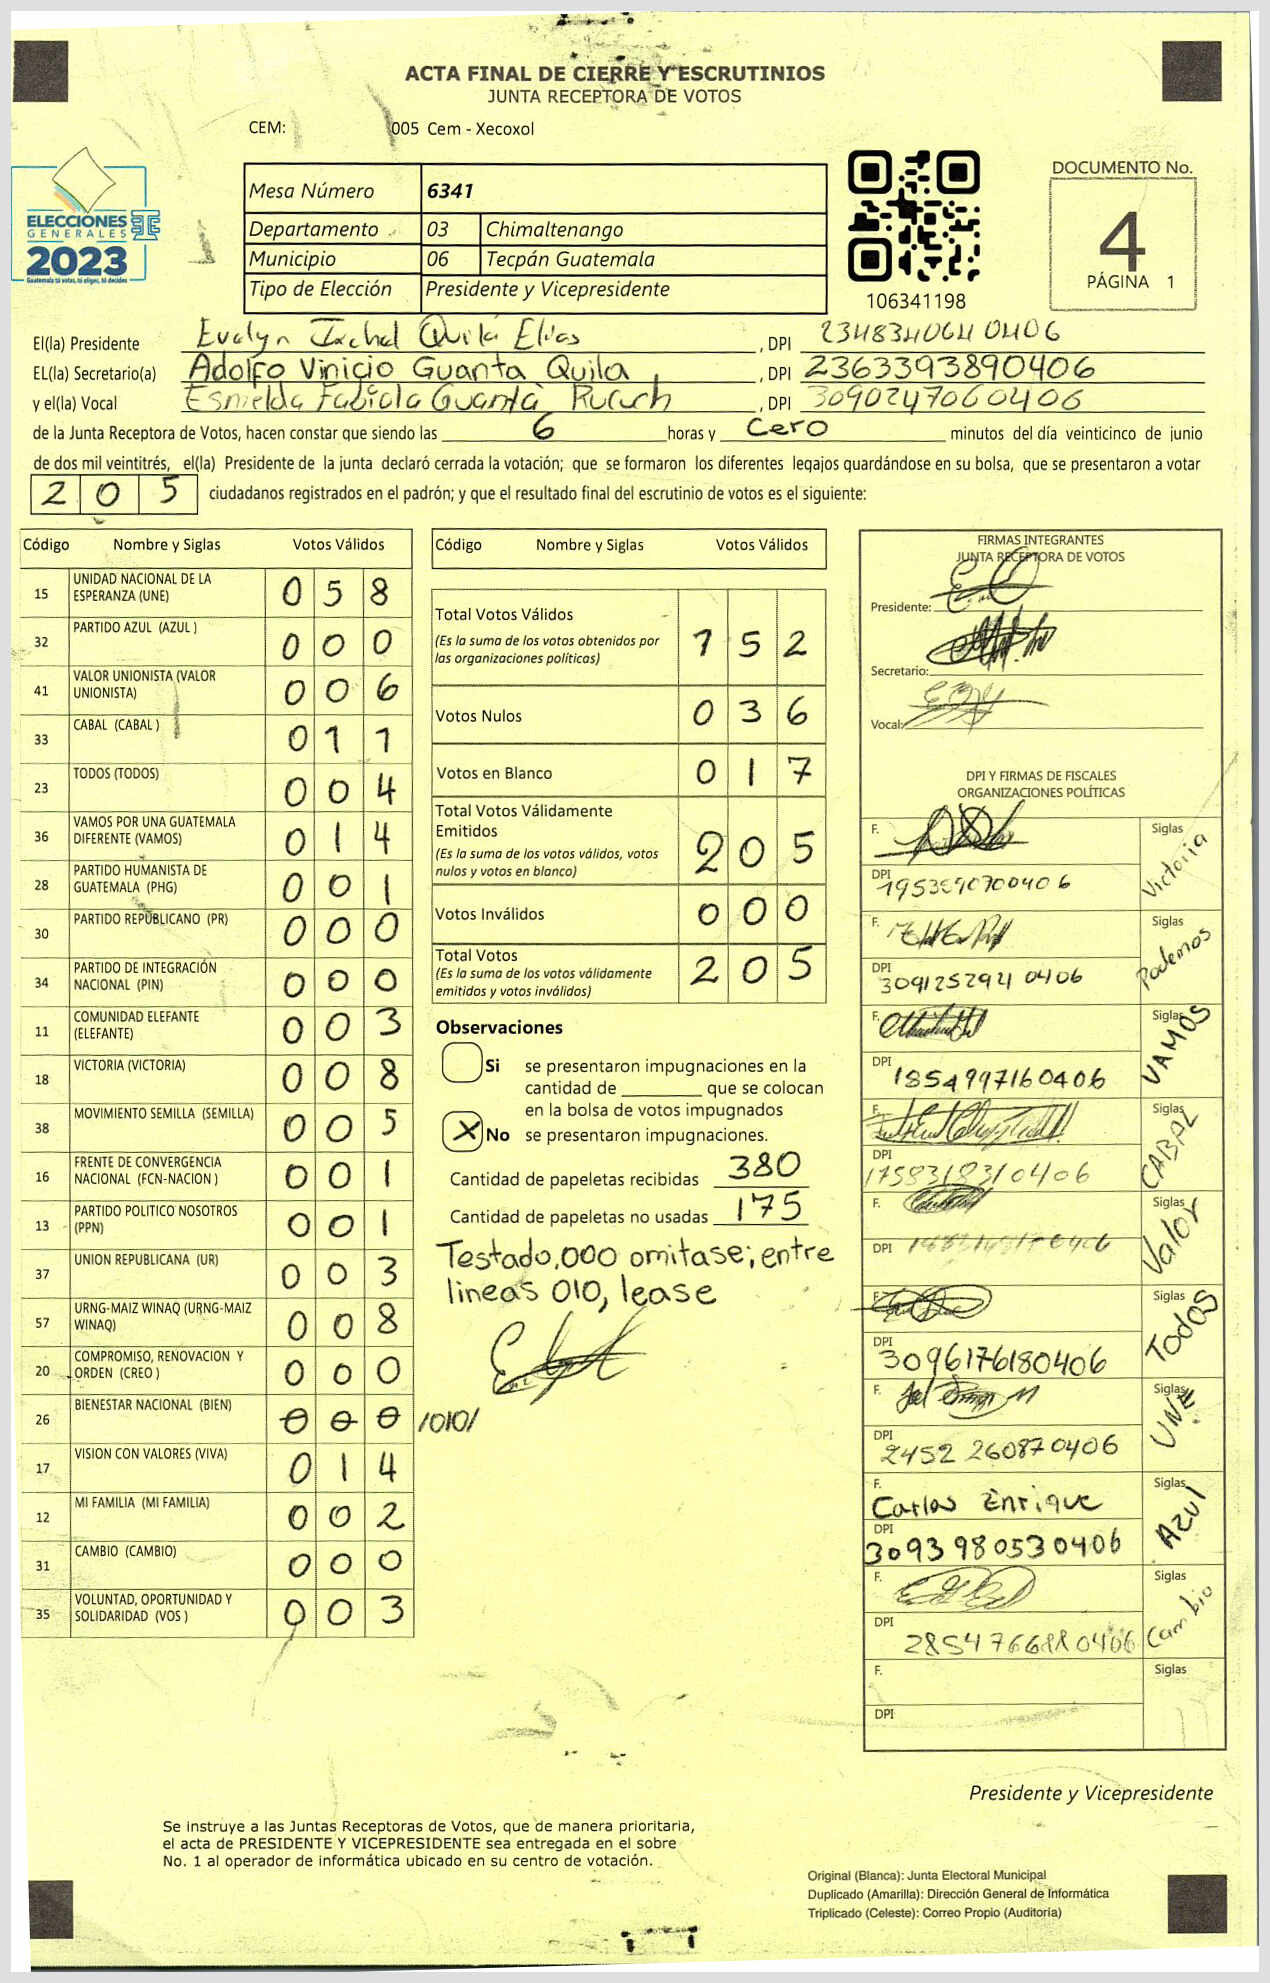 ACTA FINAL DE CIERRE Y ESCRUTINIOS
JUNTA RECEPTORA DE VOTOS
CEM: 005 Cem - Xecoxol
ELECCIONES
GENERALES
2023
Guatemala tú votas, tú eliges, tú decides
Mesa Número 6341
Departamento 03 Chimaltenango
Municipio 06 Tecpán Guatemala
Tipo de Elección Presidente y Vicepresidente
106341198
DOCUMENTO No.
4
PÁGINA 1
El(la) Presidente Evelyn Ixchel Quilá Elías, DPI 2348340640406
EL(la) Secretario(a) Adolfo Vinicio Guanta Quila, DPI 2363393890406
y el(la) Vocal Esnielda Fabiola Guanta, DPI 3090247060406
de la Junta Receptora de Votos, hacen constar que siendo las 6 horas y cero minutos del día veinticinco de junio
de dos mil veintitrés, el(la) Presidente de la junta declaró cerrada la votación; que se formaron los diferentes legajos guardándose en su bolsa, que se presentaron a votar
205 ciudadanos registrados en el padrón; y que el resultado final del escrutinio de votos es el siguiente:
Código Nombre y Siglas Votos Válidos
15 UNIDAD NACIONAL DE LA ESPERANZA (UNE) 058
32 PARTIDO AZUL (AZUL ) 000
41 VALOR UNIONISTA (VALOR UNIONISTA) 006
33 CABAL (CABAL ) 011
23 TODOS (TODOS) 004
36 VAMOS POR UNA GUATEMALA DIFERENTE (VAMOS) 014
28 PARTIDO HUMANISTA DE GUATEMALA (PHG) 001
30 PARTIDO REPUBLICANO (PR) 000
34 PARTIDO DE INTEGRACIÓN NACIONAL (PIN) 000
11 COMUNIDAD ELEFANTE (ELEFANTE) 003
18 VICTORIA (VICTORIA) 008
38 MOVIMIENTO SEMILLA (SEMILLA) 005
16 FRENTE DE CONVERGENCIA NACIONAL (FCN-NACION ) 001
13 PARTIDO POLITICO NOSOTROS (PPN) 001
37 UNION REPUBLICANA (UR) 003
57 URNG-MAIZ WINAQ (URNG-MAIZ WINAQ) 008
20 COMPROMISO, RENOVACION Y ORDEN (CREO ) 000
26 BIENESTAR NACIONAL (BIEN) 000 /010/
17 VISION CON VALORES (VIVA) 014
12 MI FAMILIA (MI FAMILIA) 002
31 CAMBIO (CAMBIO) 000
35 VOLUNTAD, OPORTUNIDAD Y SOLIDARIDAD (VOS ) 003
Código Nombre y Siglas Votos Válidos
Total Votos Válidos 152
(Es la suma de los votos obtenidos por
las organizaciones políticas)
Votos Nulos 036
Votos en Blanco 017
Total Votos Válidamente
Emitidos 205
(Es la suma de los votos válidos, votos
nulos y votos en blanco)
Votos Inválidos 000
Total Votos 205
(Es la suma de los votos válidamente
emitidos y votos inválidos)
Observaciones
Si se presentaron impugnaciones en la
cantidad de ________ que se colocan
en la bolsa de votos impugnados
X No se presentaron impugnaciones.
Cantidad de papeletas recibidas 380
Cantidad de papeletas no usadas 175
Testado,000 omitase; entre
lineas 010, lease
FIRMAS INTEGRANTES
JUNTA RECEPTORA DE VOTOS
Presidente:
Secretario:
Vocal:
DPI Y FIRMAS DE FISCALES
ORGANIZACIONES POLÍTICAS
F. Siglas Victoria
DPI
F. Siglas Podemos
DPI 3091252921 0406
F. Siglas VAMOS
DPI 1854997160406
F. Siglas CABAL
DPI 1758318310406
F. Siglas Valor
DPI
F. Siglas Todos
DPI 3096176180406
F. Siglas UNE
DPI 2452 260870406
F. Carlos Enrique Siglas Azul
DPI 3093980530406
F. Siglas Cambio
DPI 2854766880406
F. Siglas
DPI
Presidente y Vicepresidente
Se instruye a las Juntas Receptoras de Votos, que de manera prioritaria,
el acta de PRESIDENTE Y VICEPRESIDENTE sea entregada en el sobre
No. 1 al operador de informática ubicado en su centro de votación.
Original (Blanca): Junta Electoral Municipal
Duplicado (Amarilla): Dirección General de Informática
Triplicado (Celeste): Correo Propio (Auditoría)